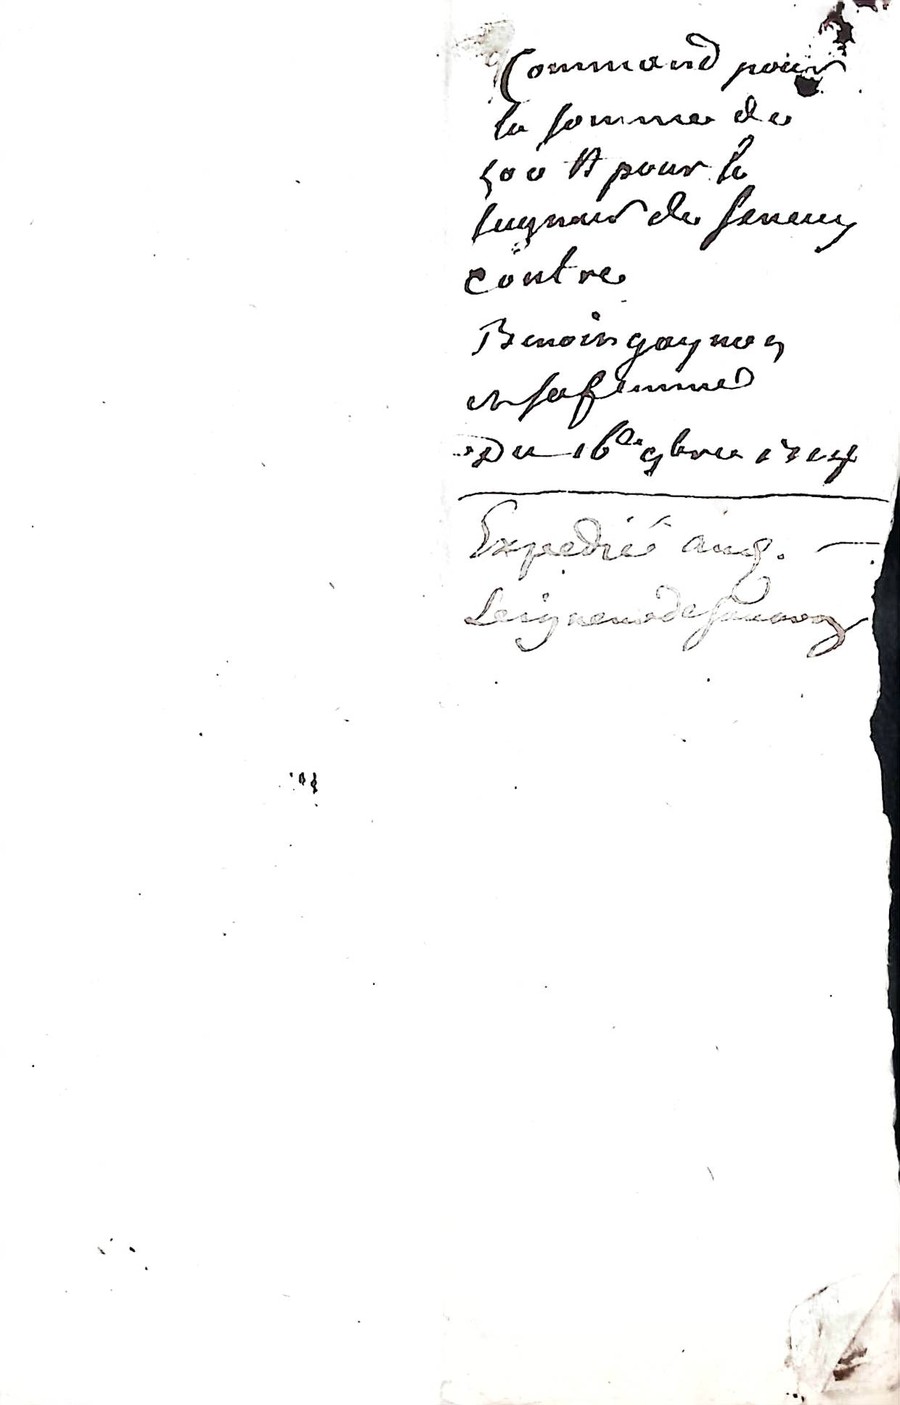 Command pour
la somme de
500 tt pour le
seigneur de
contre
Benoin gaynon
et sa femme
Du 16e 9bre 1714
Expedié aud.
Seigneur de